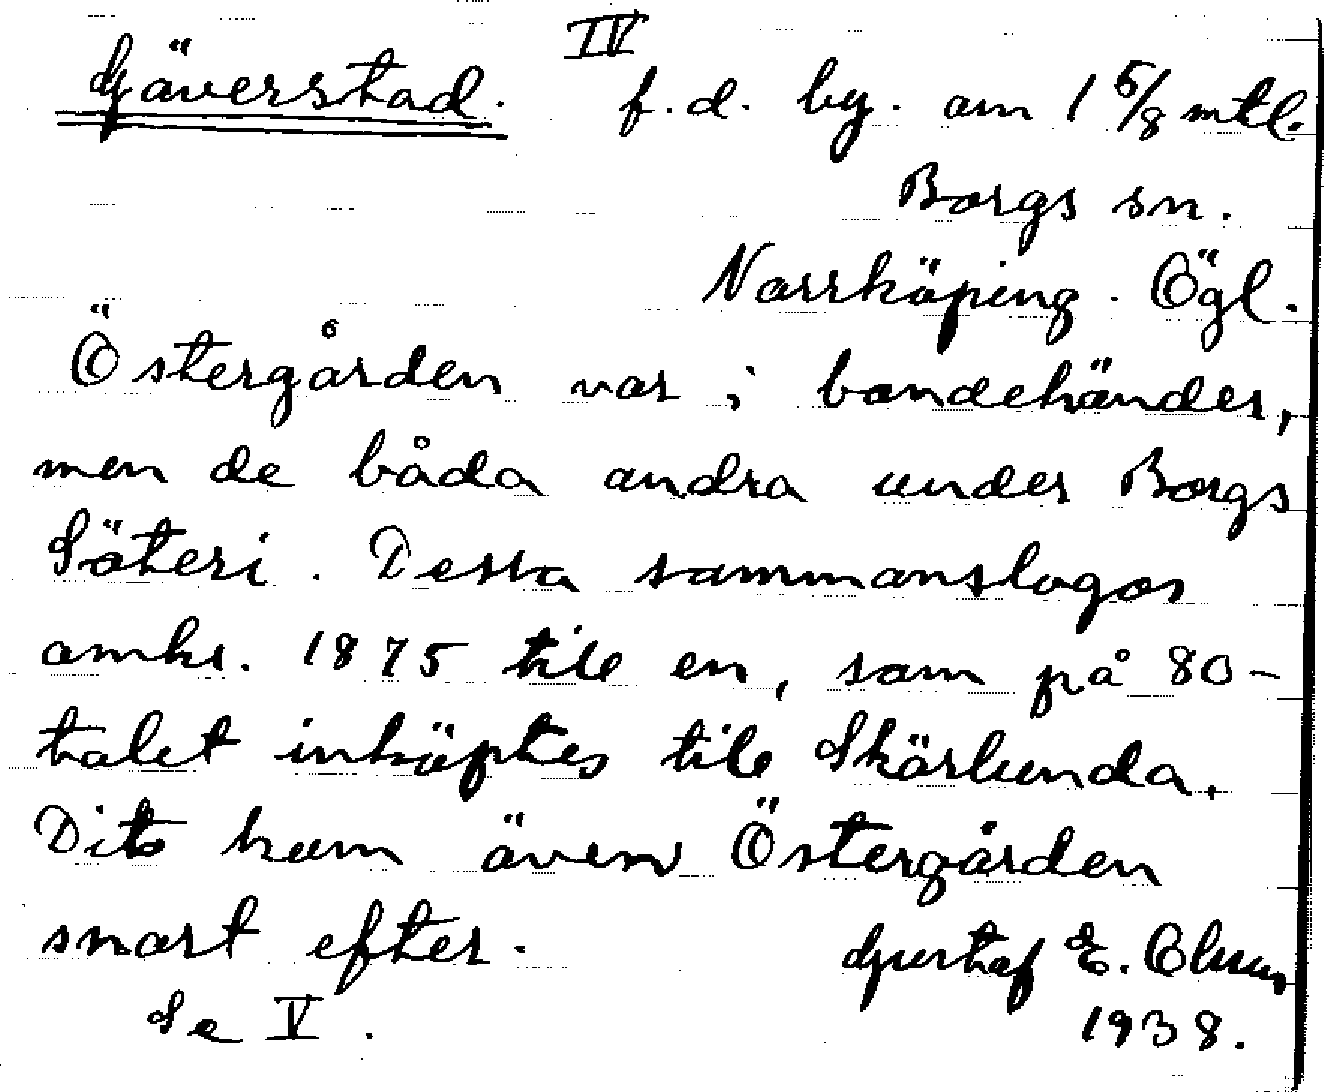 IV
Gäverstad. f.d. by. om 1 5/8 mtl.
Borgs sn.
Norrköping. Ögl.
Östergården var i bondehänder,
men de båda andra under Borgs
Säteri. Dessa sammanslogos
omkr. 1875 till en, som på 80-
talet inköptes till Skärlunda.
Dit kom även Östergården
snart efter.
Gustaf E. Olsson
Se V. 1938.